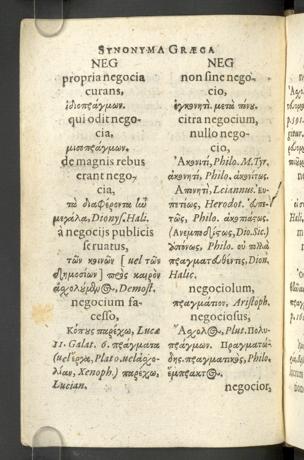 SYNONYMA GRÆCA
NEG
propria negocia
curans,
ἰδιοπράγμων.
qui odit nego-
cia,
μισοπράγμων.
de magnis rebus
erant nego-
cia,
τὰ διαφέροντα
μεγάλα, Dionys. Hali.
à negocijs publicis
seruatus,
τῶν κοινῶν [uel τῶν
δημοσίων] πρὸς καιρὸν
Demost.
negocium fa-
cesso,
Κόπυς παρέχω, Lucæ
11. Galat. 6. πράγματα
(uel ἔργα, Plato. uel ἀχο-
λίαν, Xenoph.) παρέχω,
Lucian.
NEG
non sine nego-
cio,
μετὰ πόνου.
citra negocium,
nullo nego-
cio,
Ἀκονιτί, Philo. M. Tyr.
ἀκονητὶ, Philo. ἀκονίτως.
Herodot.
Philo.
Dio. Sic.)
Philo.
Dion.
Halic.
negociolum,
πραγμάτιον, Aristoph.
negociosus,
Ἄσχολος, Plut. Πολυ-
πράγμων. Πραγματώ-
δης. πραγματικὸς, Philo.
ἔμπρακτος.
negocior,